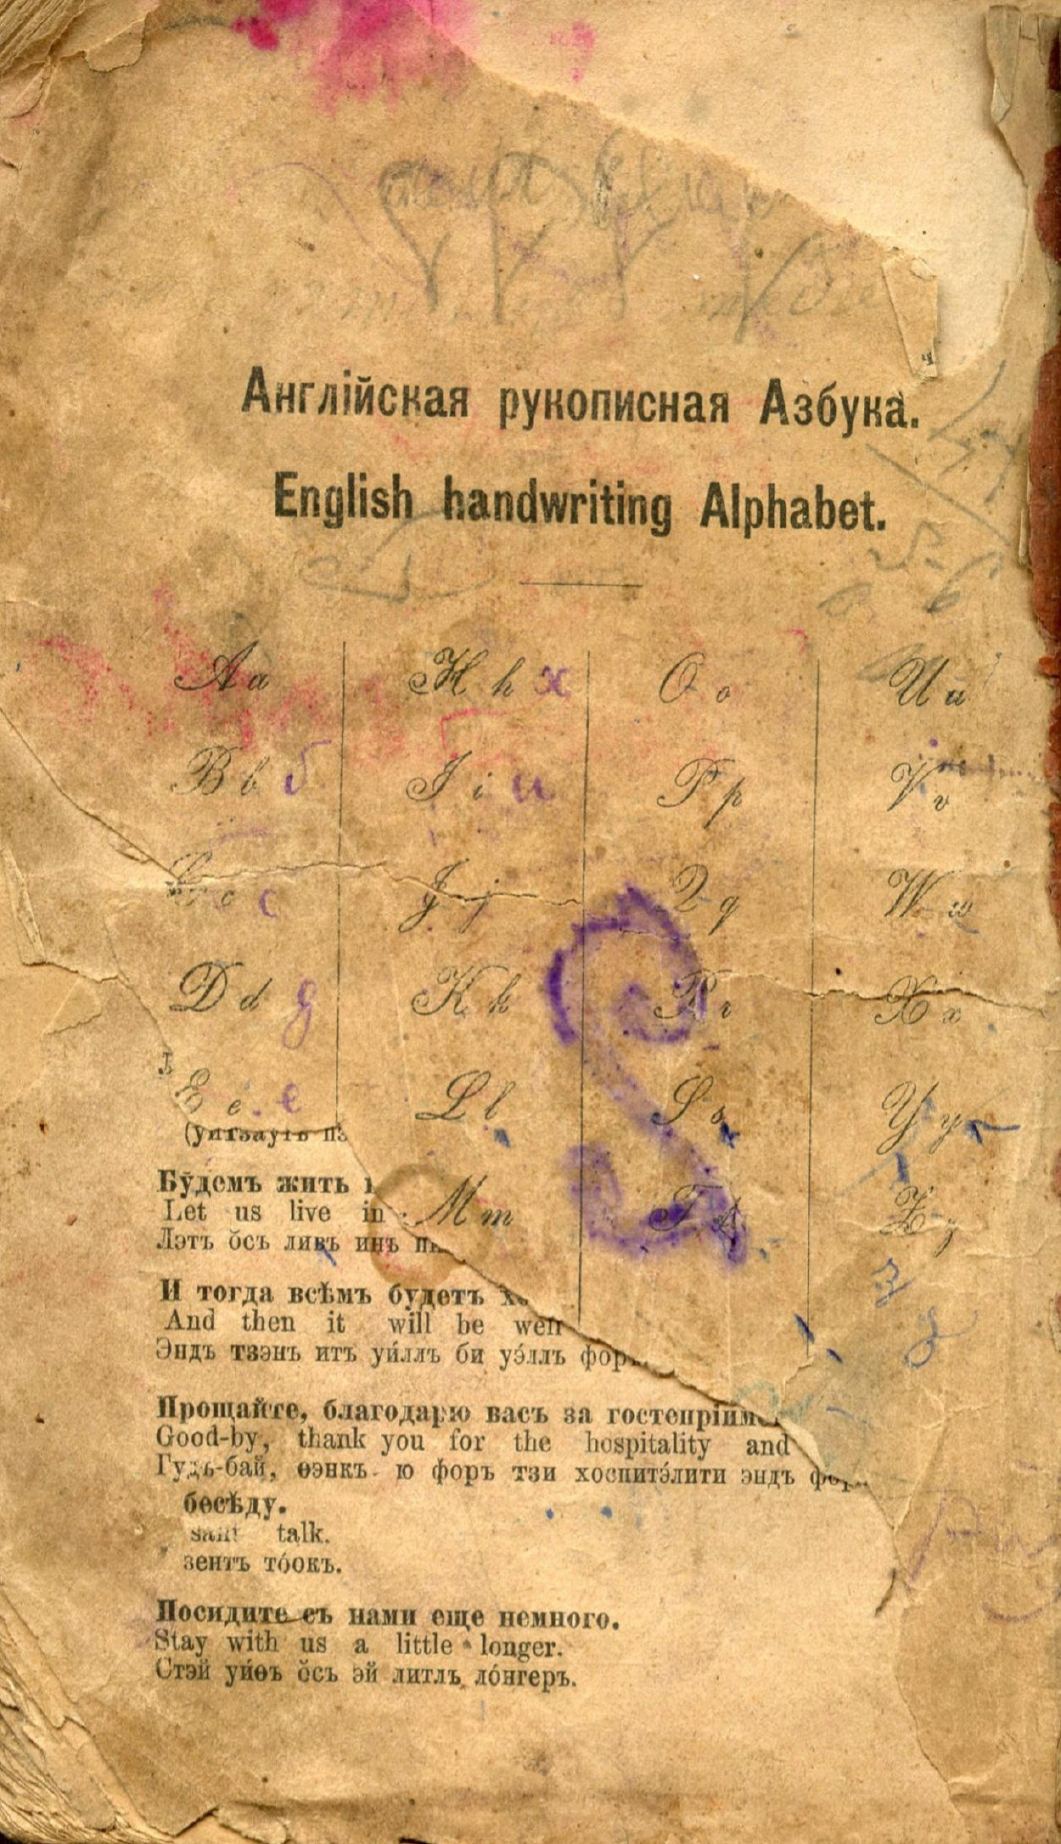 Англійская рукописная Азбука.
English handwriting Alphabet.
A a H h х O o U u
B b б I i и P p V v
C c с J j Q q W w
D d д K k R r X x
E e е L l S s Y y
M m T t Z z
з
д
Будемъ жить
Let us live in
Лэтъ ŏсъ ливъ инъ
И тогда всѣмъ будетъ
And then it will be well
Эндъ тзэнъ итъ уи́ллъ би уэ́ллъ форъ
Прощайте, благодарю васъ за гостепріим
Good-by, thank you for the hospitality and
Гудъ-бай, ѳэнкъ ю форъ тзи хоспитэ́лити эндъ фор
бесѣду.
sant talk.
зентъ то́окъ.
Посидите съ нами еще немного.
Stay with us a little longer.
Стэй уи́ѳъ ŏсъ эй литлъ ло́нгеръ.